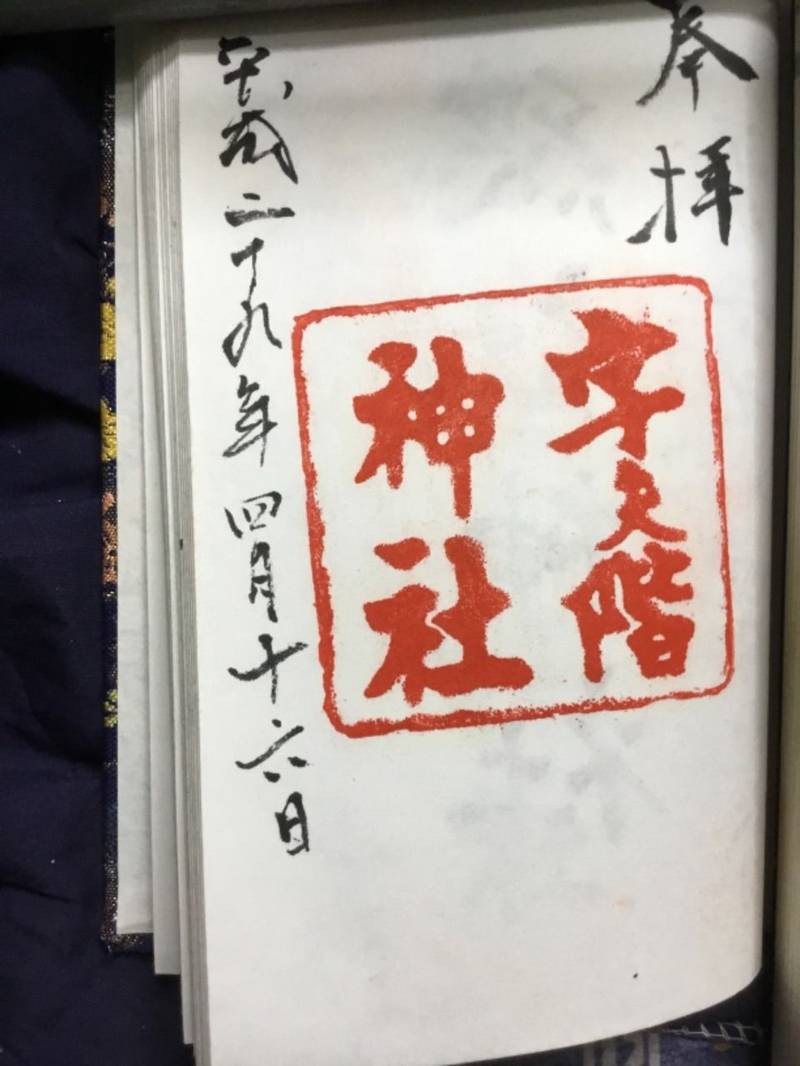 奉拝
宇夫階
神社
平成二十九年四月十六日